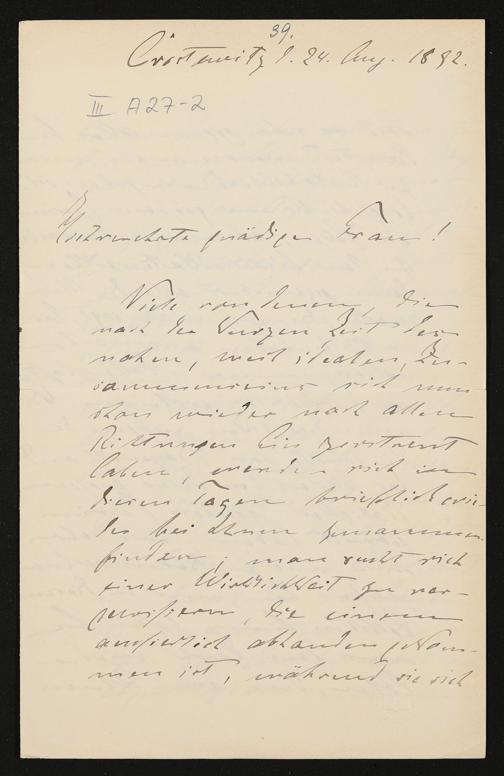 39.
Crostewitz d. 24. Aug. 1892.
III A27-2
Hochverehrte gnädige Frau!
Viele von denen, die
nach der kurzen Zeit des
nahen, weil idealen, Zu-
sammenseins sich nun
schon wieder nach allen
Richtungen hin zerstreut
haben, werden sich in
diesen Tagen brieflich wie-
der bei Ihnen zusammen-
finden; man sucht sich
einer Wirklichkeit zu ver-
gewissern, die einem
äußerlich abhanden gekom-
men ist, während sie sich